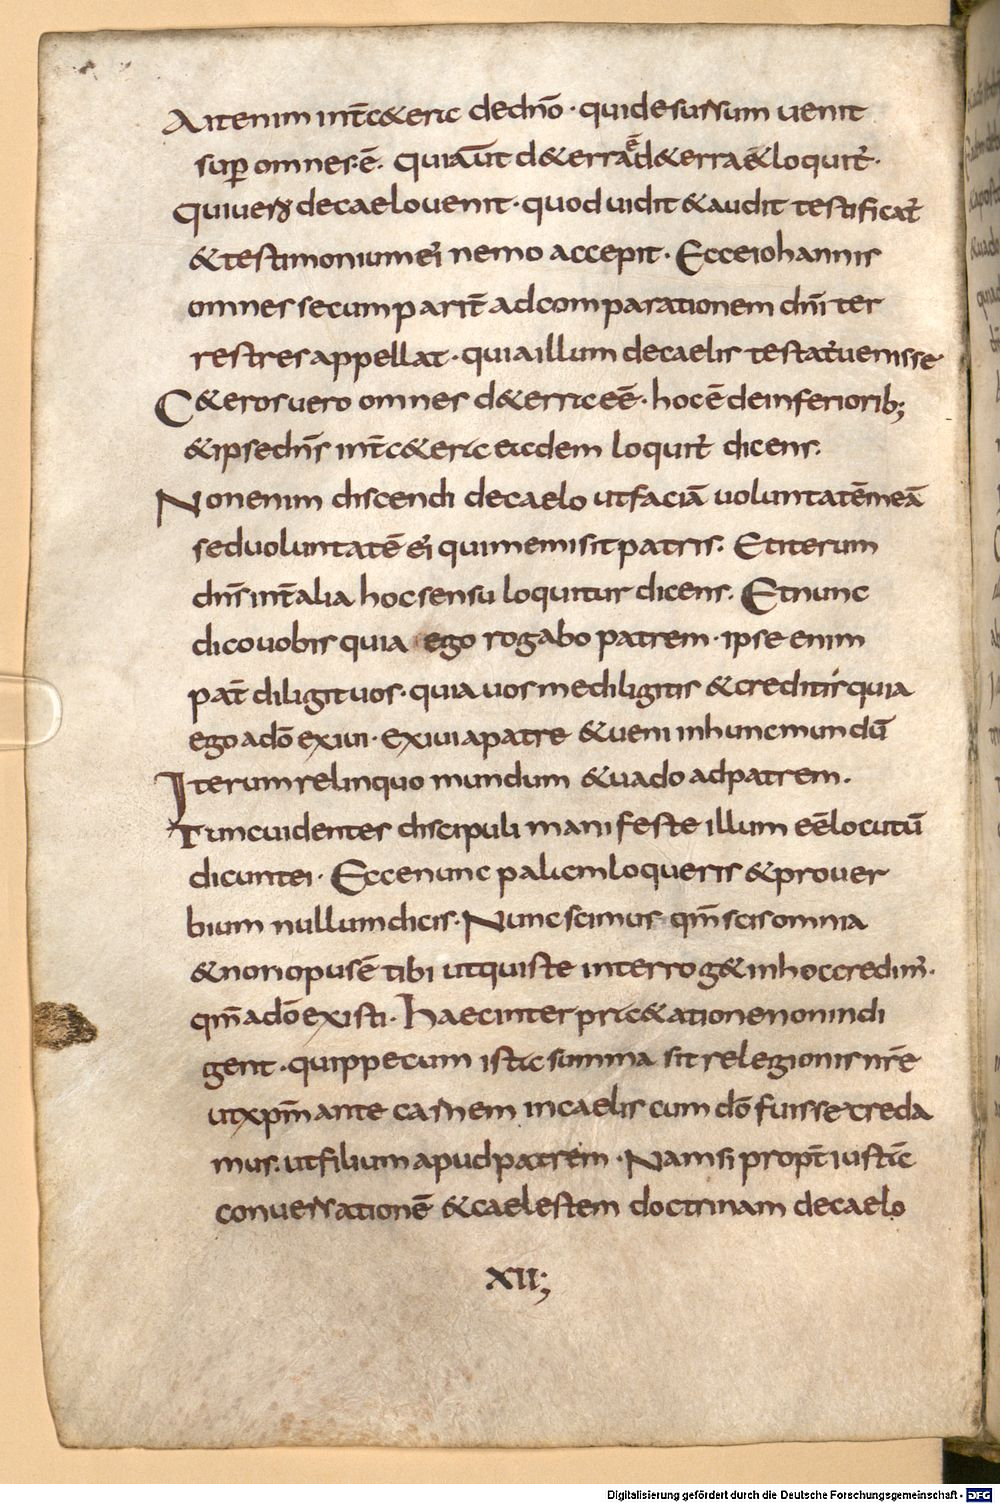 Ait enim int̄ c&eric de dn̄o · qui de sursum uenit
sup̱ omnes · ē. Qui aūt d&erra ē d&erra & loquit̄ ·
Qui uero de caelo uenit · quod uidit & audit testificat̄
& testimonium ei nemo accepit · Ecce iohannis
omnes secum parit̄ ad comparationem dn̄i ter
restres appellat · quia illum de caelis testat̄ uenisse
C&eros uero omnes d&erric eē · hoc ē de inferiorib;
& ipse dn̄s int̄ c&eric eicdem loquit̄ dicens.
Non enim discendi de caelo ut faciā uoluntatē meā
sed uoluntatē ei qui me misit patris. Et iterum
dn̄s int̄ alia hoc sensu loquitur dicens. Et nunc
dico uobis quia ego rogabo patrem · ipse enim
pat̄ diligit uos · quia uos me diligitis & creditis quia
ego a dō exiui · exiui a patre & ueni in hunc mundū
Iterum relinquo mundum & uado ad patrem.
Tunc uidentes discipuli manifeste illum eē locutū
dicunt ei · Ecce nunc palicm loqueris & prouer
bium nullum dicis · Nunc scimus qm̄ scis omnia
& non opus ē tibi ut quis te interrog& in hoc credim̄ ·
qm̄ a dō existi · Haec interpric&atione non indi
gent · quippe cum istic summa sit relegionis nr̄e
ut xpm̄ ante carnem in caelis cum dō fuisse creda
mus. ut filium apud patrem · Nam si propt̄ iustic
conuersationē & caelestem doctrinam de caelo
XII;
Digitalisierung gefördert durch die Deutsche Forschungsgemeinschaft - DFG